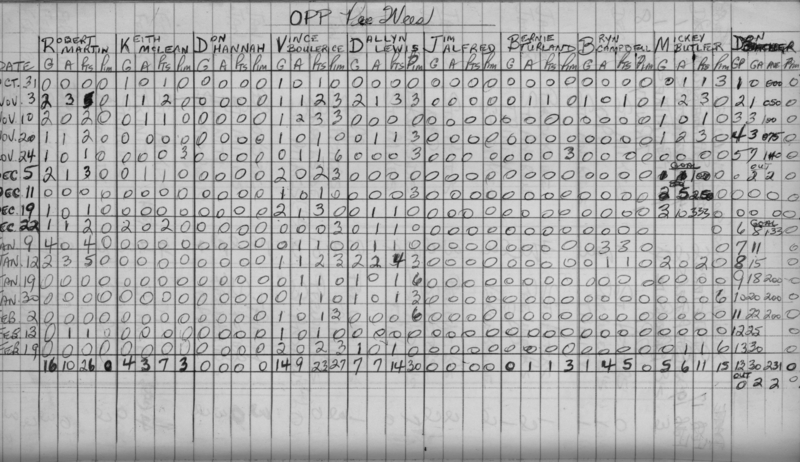 OPP Pee Weed
ROBERT MARTIN KEITH MCLEAN DON HANNAH VINCE BOULERICE DALLYN LEWIS JIM ALFRED BERNIE TURLAND BRYN CAMPBELL MICKEY BUTLER
DATE G A Pts Pim G A Pts Pim G A Pts Pim G A Pts Pim G A Pts Pim G A Pts Pim G A Pts Pim G A Pts Pim G A Pts Pim GP GA Ave Pim
OCT. 31 0 0 0 0 1 0 1 0 0 0 0 0 0 0 0 0 0 0 0 0 0 0 0 0 0 0 0 0 0 0 0 0 0 1 1 3 1 0 000
NOV. 3 2 3 5 0 1 1 2 0 0 0 0 0 1 1 2 3 2 1 3 3 0 0 0 0 0 1 1 0 1 0 1 0 1 2 3 0 2 1 050
NOV. 10 2 0 2 0 0 1 1 0 0 0 0 0 1 2 3 3 0 0 0 0 0 0 0 0 0 0 0 0 0 0 0 0 1 0 1 0 3 3
NOV. 20 1 1 2 0 0 0 0 0 0 0 0 0 1 0 1 0 0 1 1 3 0 0 0 0 0 0 0 0 0 0 0 0 1 2 3 0 4 3 075
NOV. 24 1 0 1 0 0 0 0 3 0 0 0 0 0 1 1 6 0 0 0 3 0 0 0 0 0 0 0 3 0 0 0 0 0 0 0 0 5 7 140
DEC 5 2 1 3 0 0 1 1 0 0 0 0 0 2 0 2 3 0 0 0 0 0 0 0 0 0 0 0 0 0 0 0 0 GOAL OUT 0 2 2
DEC. 11 0 0 0 0 0 0 0 0 0 0 0 0 1 0 1 0 0 0 0 3 0 0 0 0 0 0 0 0 0 0 0 0 2 5 250
DEC. 19 1 0 1 0 0 0 0 0 0 0 0 0 2 1 3 0 0 1 1 0 0 0 0 0 0 0 0 0 0 0 0 0 3 10 333 0 0 0 0
DEC. 22 1 1 2 0 2 0 2 0 0 0 0 0 0 0 0 3 0 1 1 0 0 0 0 0 0 0 0 0 0 0 0 0 GOAL 6 8 133
JAN. 9 4 0 4 0 0 0 0 0 0 0 0 0 0 1 1 0 0 1 1 0 0 0 0 0 0 0 0 0 0 3 3 0 7 11
JAN. 12 2 3 5 0 0 0 0 0 0 0 0 0 1 1 2 3 2 2 4 3 0 0 0 0 0 0 0 0 0 1 1 0 2 0 2 0 8 15
JAN. 19 0 0 0 0 0 0 0 0 0 0 0 0 0 1 1 0 1 0 1 6 0 0 0 0 0 0 0 0 0 0 0 0 9 18 200
JAN. 30 0 0 0 0 0 0 0 0 0 0 0 0 0 1 1 0 1 0 1 3 0 0 0 0 0 0 0 0 0 0 0 0 0 0 0 6 10 20 200
FEB. 2 0 0 0 0 0 0 0 0 0 0 0 0 1 0 1 3 0 0 0 6 0 0 0 0 0 0 0 0 0 0 0 0 0 0 0 0 11 22 200
FEB. 13 0 1 1 0 0 0 0 0 0 0 0 0 1 0 1 0 0 0 0 0 0 0 0 0 0 0 0 0 0 0 0 0 0 0 0 0 12 25
FEB. 19 0 0 0 0 0 0 0 0 0 0 0 0 2 0 2 3 1 0 1 0 0 0 0 0 0 0 0 0 0 0 0 0 0 1 1 6 13 30
16 10 26 0 4 3 7 3 0 0 0 0 14 9 23 27 7 7 14 30 0 0 0 0 0 1 1 3 1 4 5 0 5 6 11 15 13 30 231
OUT 0 2 2 0